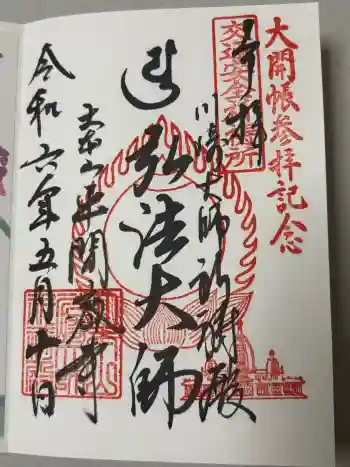 大開帳参拝記念
交通安全祈祷所
奉拝
川崎大師祈祷殿
弘法大師
大本山平間寺
令和六年五月十日